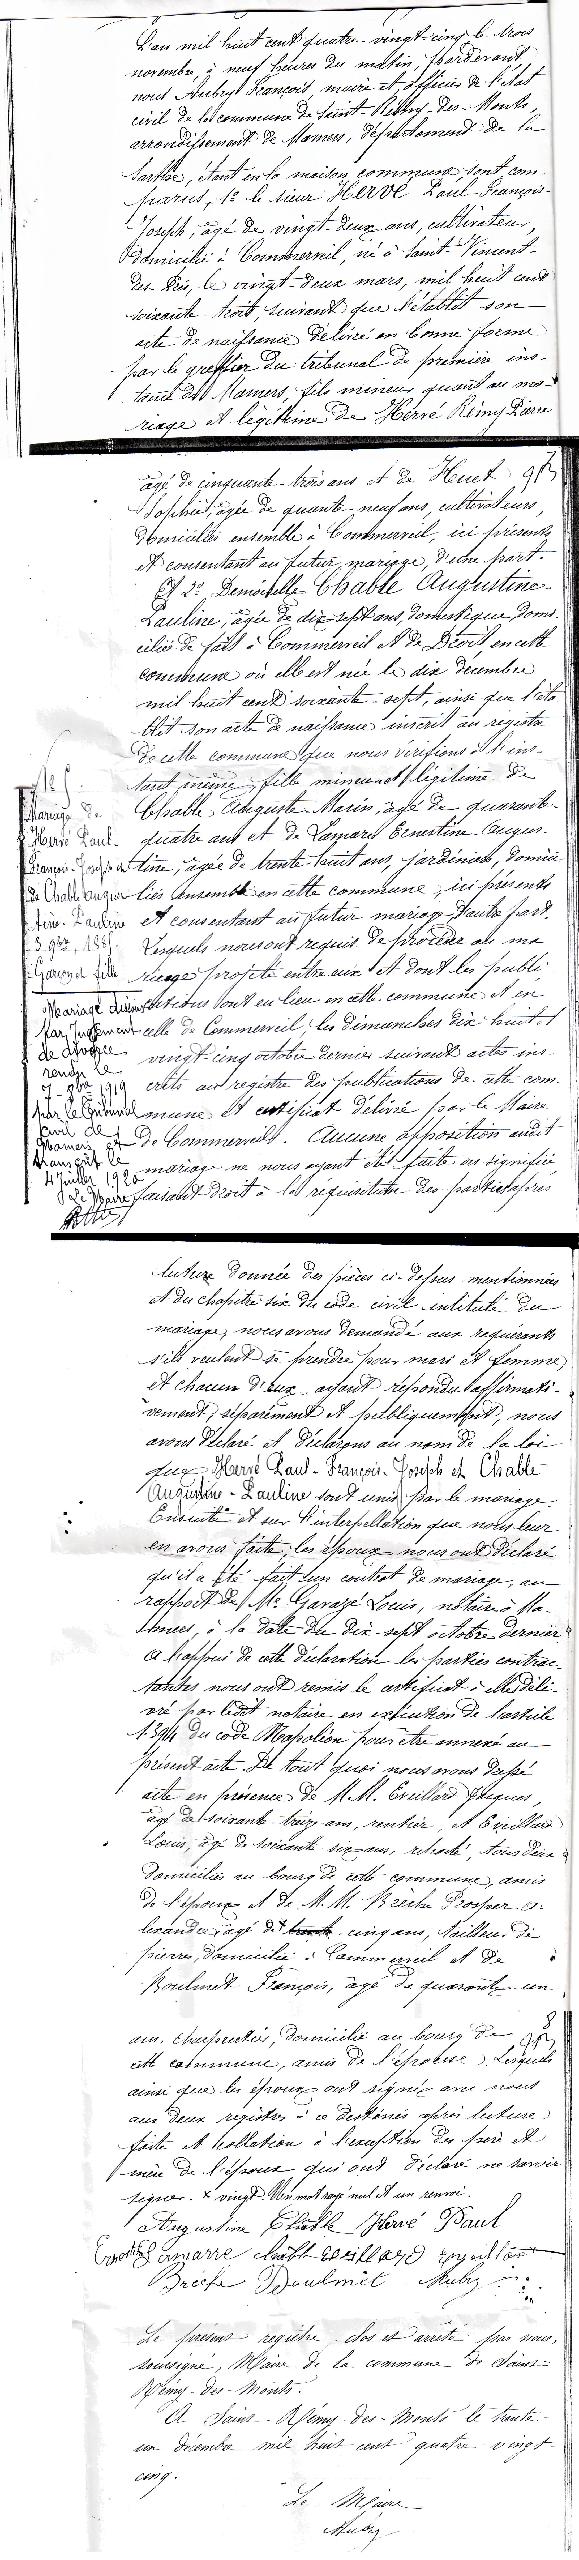 L'an mil huit cent quatre-vingt-cinq le trois
novembre, à neuf heures du matin, pardevant
nous Aubry François, maire et officier de l'état
civil de la commune de Saint-Rémy-des-Monts,
arrondissement de Mamers, département de la
Sarthe, étant en la maison commune, sont com-
parus, 1° le sieur HERVÉ Paul-François-
Joseph, âgé de vingt-deux ans, cultivateur,
domicilié à Commerveil, né à Saint-Vincent-
des-Prés, le vingt-deux mars, mil huit cent
soixante trois, suivant que l'établit son
acte de naissance délivré en bonne forme
par le greffier du tribunal de première ins-
tance de Mamers, fils mineur quant au ma-
riage et légitime de Hervé Rémy Pierre
âgé de cinquante-trois ans et de Huet
Sophie, âgée de quarante-neuf ans, cultivateurs,
domiciliés ensemble à Commerveil, ici présents
et consentant au futur mariage, d'une part.
Et 2° Demoiselle Chable Augustine-
Pauline, âgée de dix-sept ans, domestique, domi-
ciliée de fait à Commerveil et de Droit en cette
commune où elle est née le dix décembre
mil huit cent soixante-sept, ainsi que l'éta
blit son acte de naissance inscrit au registre
de cette commune que nous vérifions à l'ins-
tant même, fille mineure et légitime de
Chable Auguste-Marin, âgé de quarante-
quatre ans et de Lamarre Ernestine-Augus-
tine, âgée de trente-huit ans, jardiniers, domici
liés ensemble en cette commune, ici présents
et consentant au futur mariage d'autre part.
Lesquels nous ont requis de procéder au ma
riage projeté entre eux et dont les publi
cations ont eu lieu en cette commune et en
celle de Commerveil, les dimanches dix-huit et
vingt-cinq octobre dernier suivant actes ins
crits au registre des publications de cette com
mune et certificat délivré par le Maire
de Commerveil. Aucune opposition audit
mariage ne nous ayant été faite ou signifiée
faisant droit à la réquisition des parties après
N° 5.
Mariage de
Hervé Paul-
François-Joseph et
de Chable Augus
tine-Pauline
3 9bre, 1885.
Garçon et fille
Mariage dissous
par Jugement
de divorce
rendu le
7 9bre 1919
par le Tribunal
civil de
Mamers et
transcrit le
4 Juillet 1920
Le Maire
lecture donnée des pièces ci-dessus mentionnées
et du chapitre six du code civil intitulé du
mariage, nous avons demandé aux requérants
s'ils veulent se prendre pour mari et femme,
et chacun d'eux ayant répondu affirmati-
vement, séparément et publiquement, nous
avons déclaré et déclarons au nom de la loi
que Hervé Paul-François-Joseph et Chable
Augustine-Pauline sont unis par le mariage.
Ensuite et sur l'interpellation que nous leur
en avons faite, les époux nous ont déclaré
qu'il a été fait un contrat de mariage, au
rapport de Me Garazé Louis, notaire à Ma-
mers, à la date du dix-sept octobre dernier
A l'appui de cette déclaration les parties contrac-
tantes nous ont remis le certificat à elle déli-
vré par ledit notaire en exécution de l'article
1394 du code Napoléon pour être annexé au
présent acte. De tout quoi nous avons dressé
acte en présence de M.M. Evillard Jacques,
âgé de soixante treize ans, rentier, et Evillard
Louis, âgé de soixante six ans, retraité, tous deux
domiciliés au bourg de cette commune, amis
de l'époux et de M.M. Brèche Prosper A-
lexandre, âgé de x trente cinq ans, tailleur de
pierres, domicilié à Commerveil et de
Boulmet François, âgé de quarante-un
ans, charpentier, domicilié au bourg de
cette commune, amis de l'épouse. Lesquels
ainsi que les époux ont signé avec nous
aux deux registres à ce destinés après lecture
faite et collation à l'exception des père et
mère de l'époux qui ont déclaré ne savoir
signer. x vingt. Un mot rayé nul et un renvoi.
Augustine Chable Hervé Paul
Lamarre Chable Evillard Evillard
Brèche Boulmet Aubry
Le présent registre clos et arrêté par nous,
soussigné, Maire de la commune de Saint-
Rémy-des-Monts.
A Saint-Rémy-des-Monts le trente-
un décembre mil huit cent quatre vingt
cinq.
Le Maire
Aubry